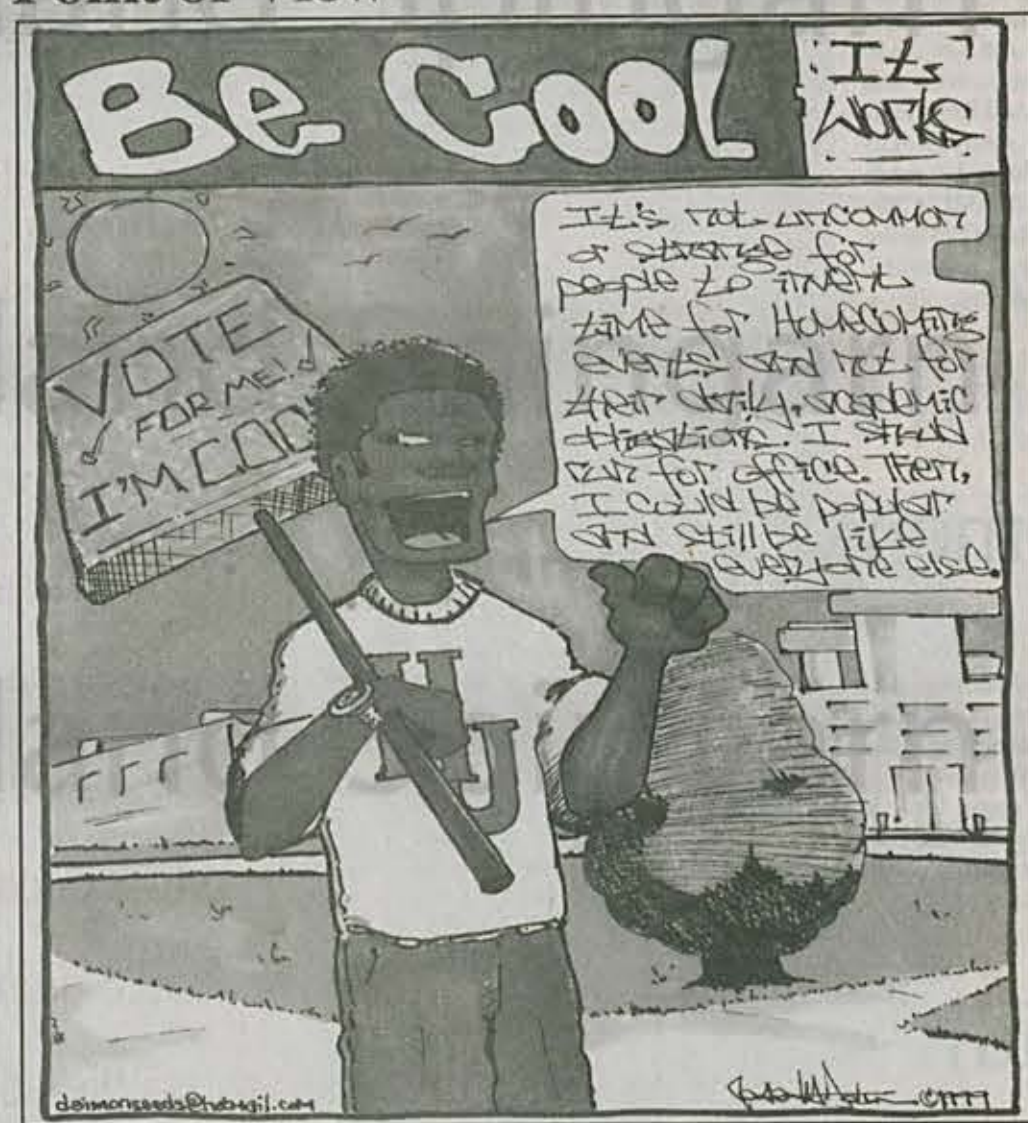 Point of View
Be Cool
It
Works
It's not uncommon
or strange for
people to invent
time for Homecoming
events and not for
their daily, academic
obligations. I should
run for office. Then,
I could be popular
and still be like
everyone else.
VOTE
FOR ME!
I'M COO
HU
daimonseeds@hotmail.com
©1999